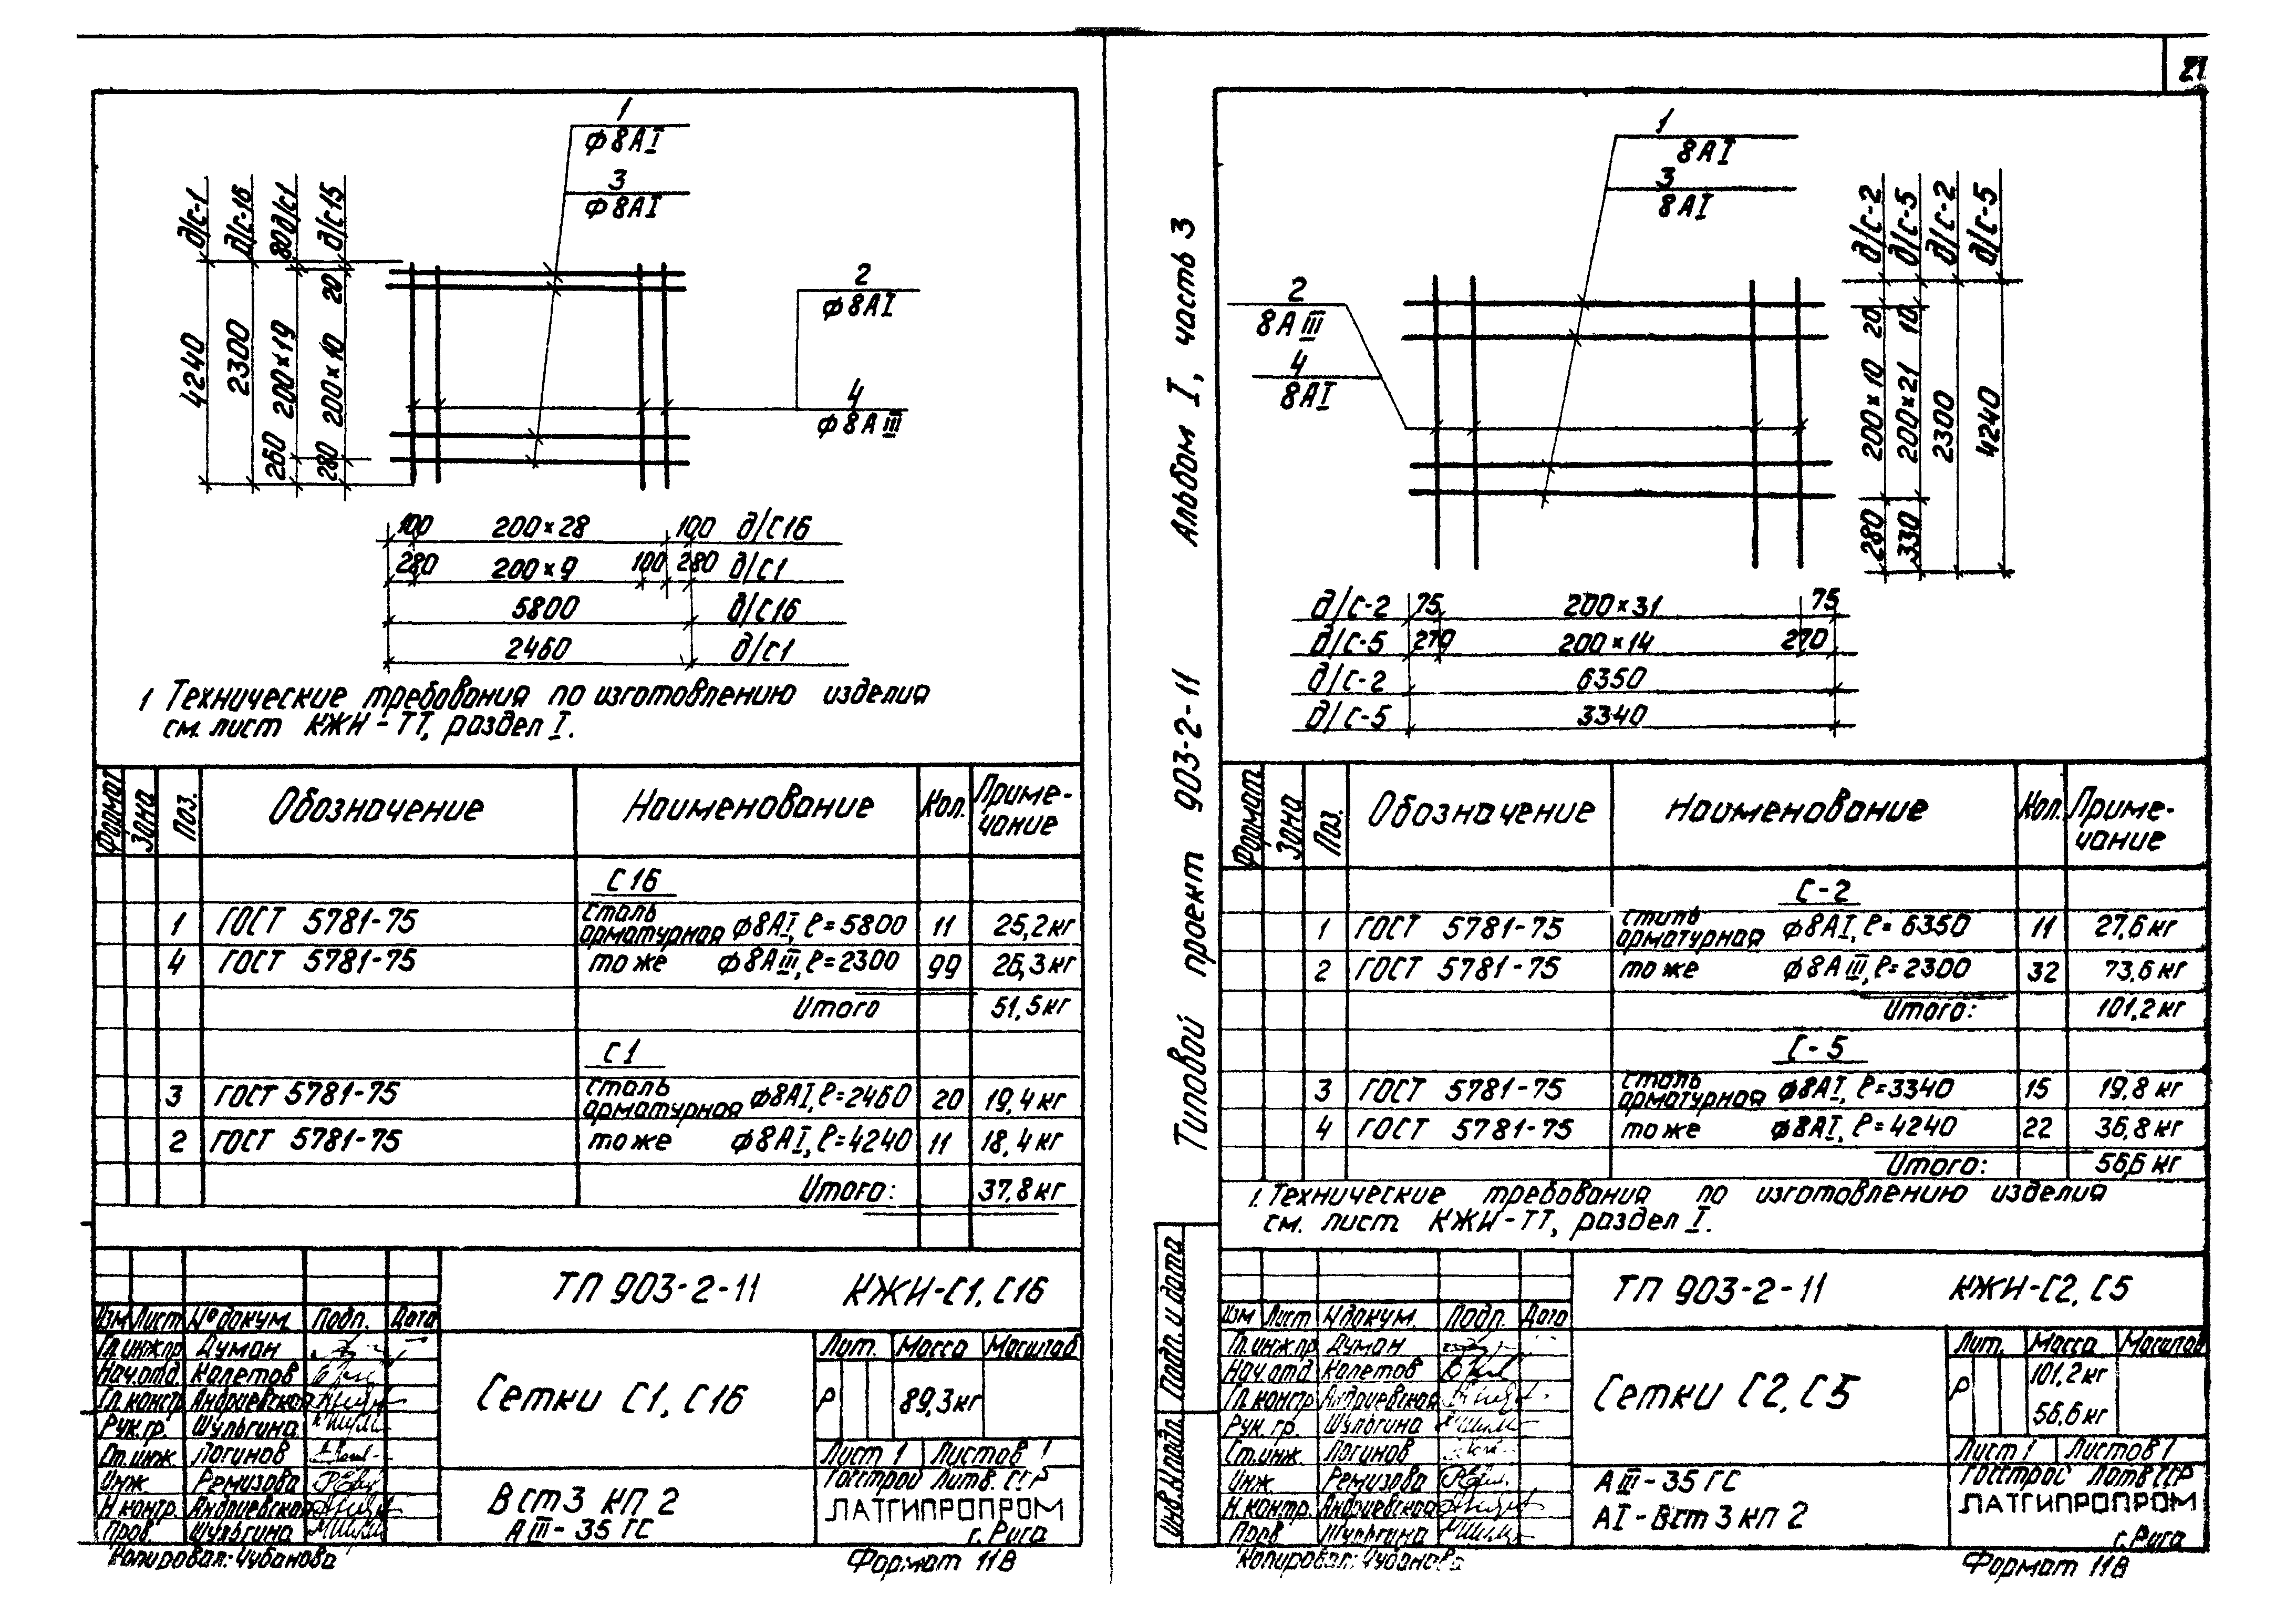 21
1
ф8АI
3
ф8АI
2
ф8АI
4
ф8АIII
д/с-1
д/с-16
80 д/с1
д/с-15
4240
2300
260 200×19
280 200×10 20
100 200×28 100 д/С16
280 200×9 100 280 д/С1
5800 д/С16
2460 д/С1
1 Технические требования по изготовлению изделия
см. лист КЖИ-ТТ, раздел I.
Формат Зона Поз. Обозначение Наименование Кол. Приме-
чание
С16
1 ГОСТ 5781-75 сталь арматурная ф8АI, ℓ=5800 11 25,2кг
4 ГОСТ 5781-75 то же ф8АIII, ℓ=2300 99 26,3кг
Итого 51,5кг
С1
3 ГОСТ 5781-75 сталь арматурная ф8АI, ℓ=2460 20 19,4кг
2 ГОСТ 5781-75 то же ф8АI, ℓ=4240 11 18,4кг
Итого: 37,8кг
ТП 903-2-11 КЖИ-С1, С16
Изм Лист №докум. Подп. Дата
Гл.инж.пр Думан
Нач.отд Калетов
Гл.констр Андриевская
Рук.гр. Шульгина
Ст.инж Логинов
Инж Ремизова
Н.контр. Андриевская
Пров Шульгина
Сетки С1, С16
Лит. Масса Масштаб
Р 89,3кг
Лист 1 Листов 1
Вст3 кп 2
АIII-35 ГС
Госстрой Латв. ССР
ЛАТГИПРОПРОМ
г. Рига
Копировал: Чубанова
Формат 11В
Типовой проект 903-2-11 Альбом I, часть 3
Подп. и дата
Инв.№подл.
1
8АI
3
8АI
2
8АIII
4
8АI
д/с-2
д/с-5
д/с-2
д/с-5
280 200×10 20
330 200×21 10
2300
4240
д/с-2 75 200×31 75
д/с-5 270 200×14 270
д/с-2 6350
д/с-5 3340
Формат Зона Поз. Обозначение Наименование Кол. Приме-
чание
С-2
1 ГОСТ 5781-75 сталь арматурная ф8АI, ℓ=6350 11 27,6кг
2 ГОСТ 5781-75 то же ф8АIII, ℓ=2300 32 73,6кг
Итого: 101,2кг
С-5
3 ГОСТ 5781-75 сталь арматурная ф8АI, ℓ=3340 15 19,8кг
4 ГОСТ 5781-75 то же ф8АI, ℓ=4240 22 36,8кг
Итого: 56,6 кг
1. Технические требования по изготовлению изделия
см. лист КЖИ-ТТ, раздел I.
ТП 903-2-11 КЖИ-С2, С5
Изм Лист Nдокум. Подп. Дата
Гл.инж пр Думан
Нач.отд Калетов
Гл.констр Андриевская
Рук.гр. Шульгина
Ст.инж Логинов
Инж. Ремизова
Н.контр. Андриевская
Пров Шульгина
Сетки С2, С5
Лит. Масса Масштаб
Р 101,2кг
56,6кг
Лист 1 Листов 1
АIII-35 ГС
АI-Вст 3 кп 2
Госстрой Латв ССР
ЛАТГИПРОПРОМ
г. Рига
Копировал: Чубанова
Формат 11В